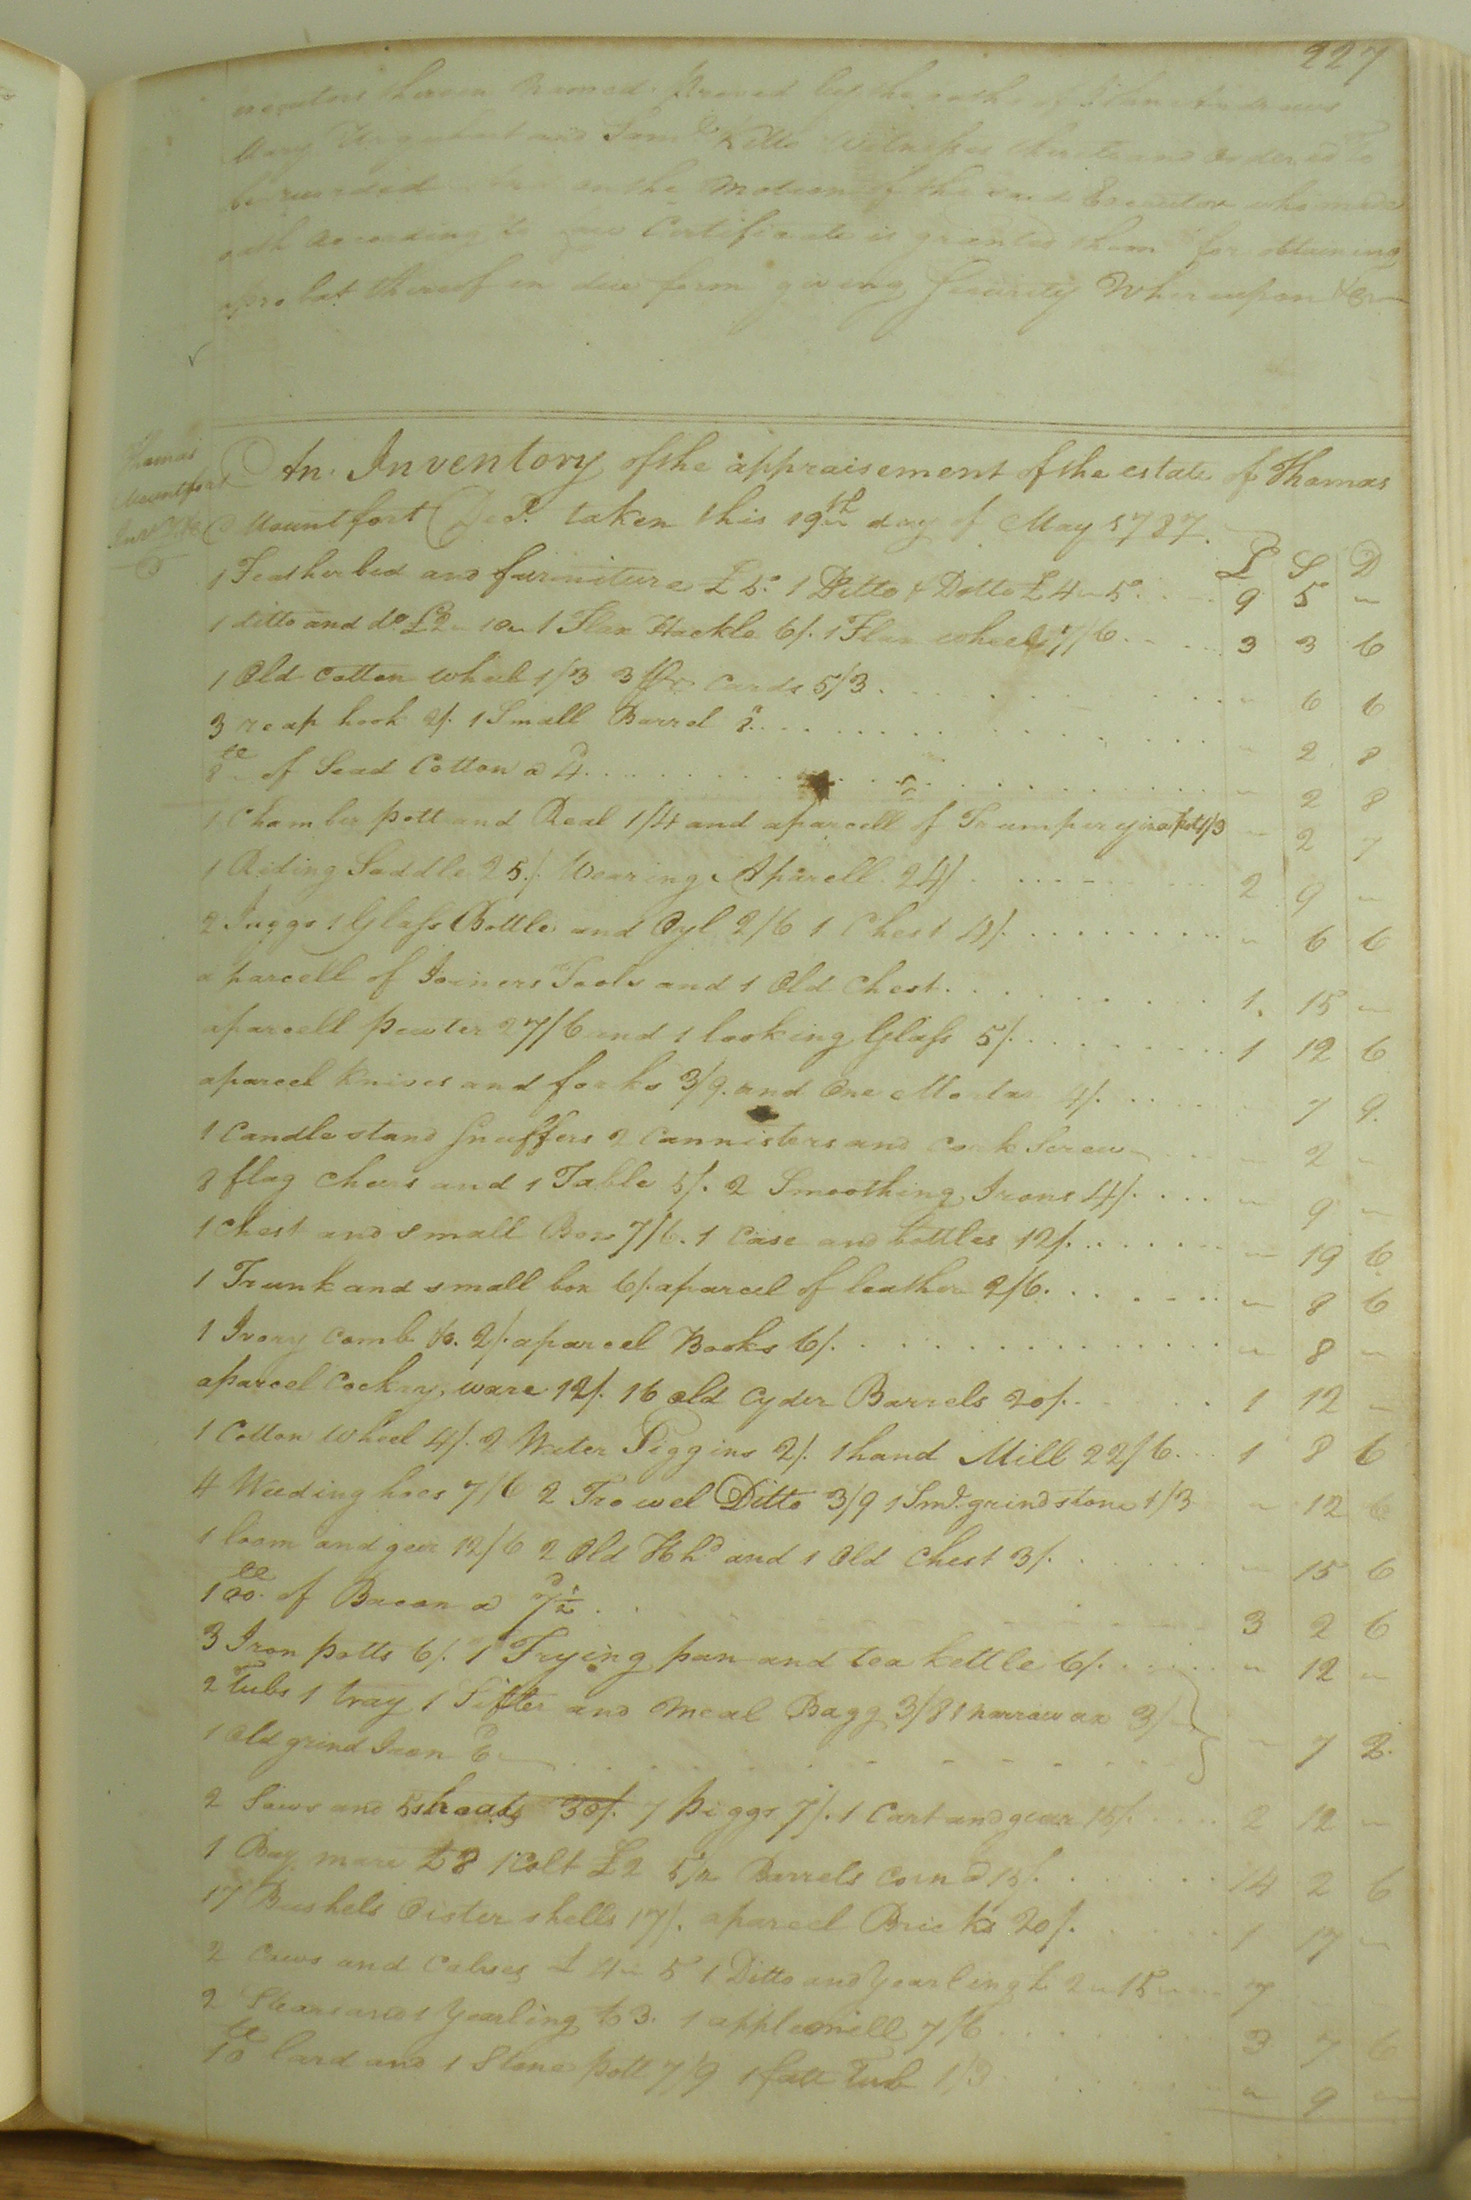 227
executors therein Named Proved by the oaths of John Andrews
Mary Urquhart and Saml Kello Witnesses thereto and Ordered to
be recorded on the Motion of the said Executor who made
oath According to Certificate is granted them for obtaining
aprobat thereof in due form giving Security Whereupon &c
Thomas
Mountfort
An Inventory of the appraisement of the estate of Thomas
Mountfort Decd. taken this 19th day of May 1787.
£ S D
1 Feather bed and furniture £5. 1 Ditto & Ditto £4 ~ 5. 9 5 ~
1 ditto and do £2 ~ 10 ~ 1 Flax Hackle 6/. 1 Flax wheel 7/6 3 3 6
1 Old Cotton wheel 1/3 3 pr Cards 5/3. ~ 6 6
3 reap hook 2/. 1 Small Barrel 8d ~ 2 8
8 lb of Sead Cotton a 4d ~ 2 8
1 Chamber pott and Real 1/4 and aparcell of Trumpery in a pot 1/3 ~ 2 7
1 Riding Saddle 25/. Wearing Aparell 24/. 2 9 ~
2 Juggs 1 Glass Bottle and Oyl 2/6 1 Chest 4/. ~ 6 6
a parcell of Joiners Tools and 1 Old Chest. 1. 15 ~
aparcell pewter 27/6 and 1 looking Glass 5/. 1 12 6
aparcel Knives and forks 3/9. and One Mortar 4/. 7 9.
1 Candle stand Snuffers 2 Cannisters and Cork Screw ~ 2 ~
8 flag Cheirs and 1 Table 5/. 2 Smoothing Irons 4/. ~ 9 ~
1 Chest and small Box 7/6. 1 Case and bottles 12/. ~ 19 6
1 Trunk and small box 6/. aparcel of leather 2/6. ~ 8 6
1 Ivory Comb &c. 2/. aparcel Books 6/. ~ 8 ~
aparcel Cockry ware 12/. 16 old Cyder Barrels 20/. 1 12 ~
1 Cotton Wheel 4/. 2 Water Piggins 2/. 1 hand Mill 22/6. 1 8 6
4 Weeding hoes 7/6 2 Trowel Ditto 3/9 1 Sml. grindstone 1/3 ~ 12 6
1 loom and gear 12/6 2 Old Hhd and 1 Old Chest 3/. ~ 15 6
100 lb of Bacon a 7½d 3 2 6
3 Iron potts 6/. 1 Frying pan and tea kettle 6/. ~ 12 ~
2 Tubs 1 tray 1 Sifter and meal Bagg 3/8 1 narrow ax 3/
1 Old grind Iron 6d ~ 7 2.
2 Sows and 5 shoats 30/. 7 piggs 7/. 1 Cart and gear 15/. 2 12 ~
1 Bay mare £8 1 Colt £2 5½ Barrels Corn @ 15/. 14 2 6
17 Bushels Oister shells 17/. aparcel Bricks 20/. 1 17 ~
2 Cows and Calves £4 ~ 5 1 Ditto and Yearling £2 ~ 15 ~ 7
2 Stears and 1 Yearling £3. 1 apple mill 7/6 3 7 6
10 lb lard and 1 Stone pott 7/9 1 fatt Tub 1/3 ~ 9 ~